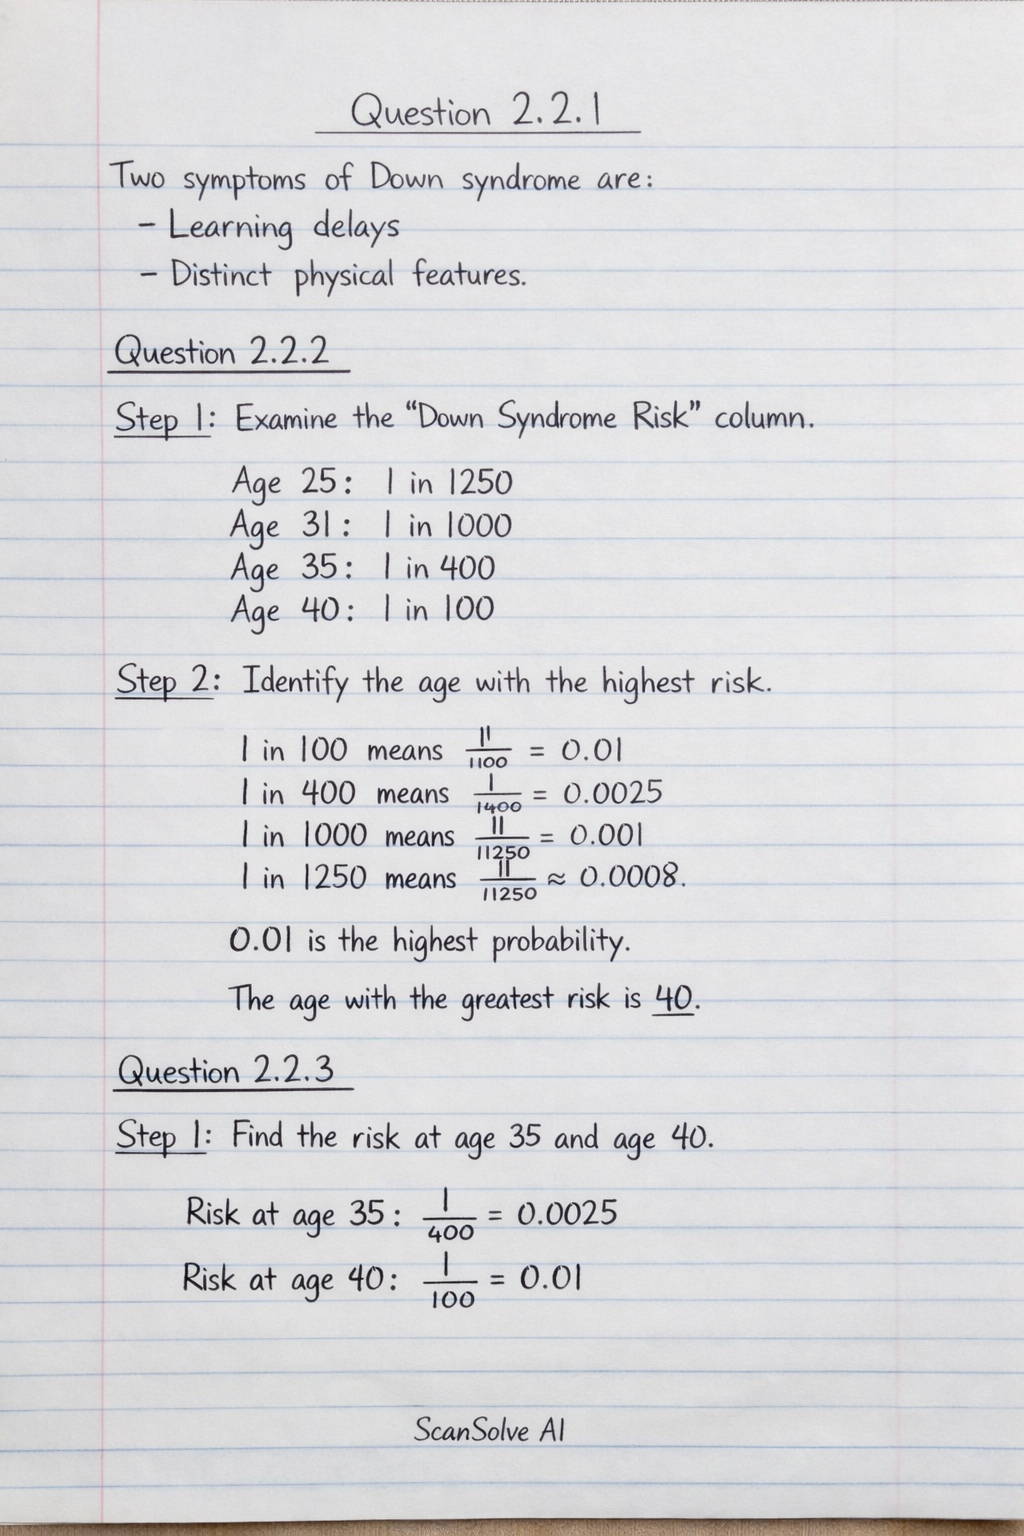 Question 2.2.1
Two symptoms of Down syndrome are:
- Learning delays
- Distinct physical features.
Question 2.2.2
Step 1: Examine the "Down Syndrome Risk" column.
Age 25: 1 in 1250
Age 31: 1 in 1000
Age 35: 1 in 400
Age 40: 1 in 100
Step 2: Identify the age with the highest risk.
1 in 100 means 11/1100 = 0.01
1 in 400 means 1/1400 = 0.0025
1 in 1000 means 11/11250 = 0.001
1 in 1250 means 11/11250 ≈ 0.0008.
0.01 is the highest probability.
The age with the greatest risk is 40.
Question 2.2.3
Step 1: Find the risk at age 35 and age 40.
Risk at age 35: 1/400 = 0.0025
Risk at age 40: 1/100 = 0.01
ScanSolve AI